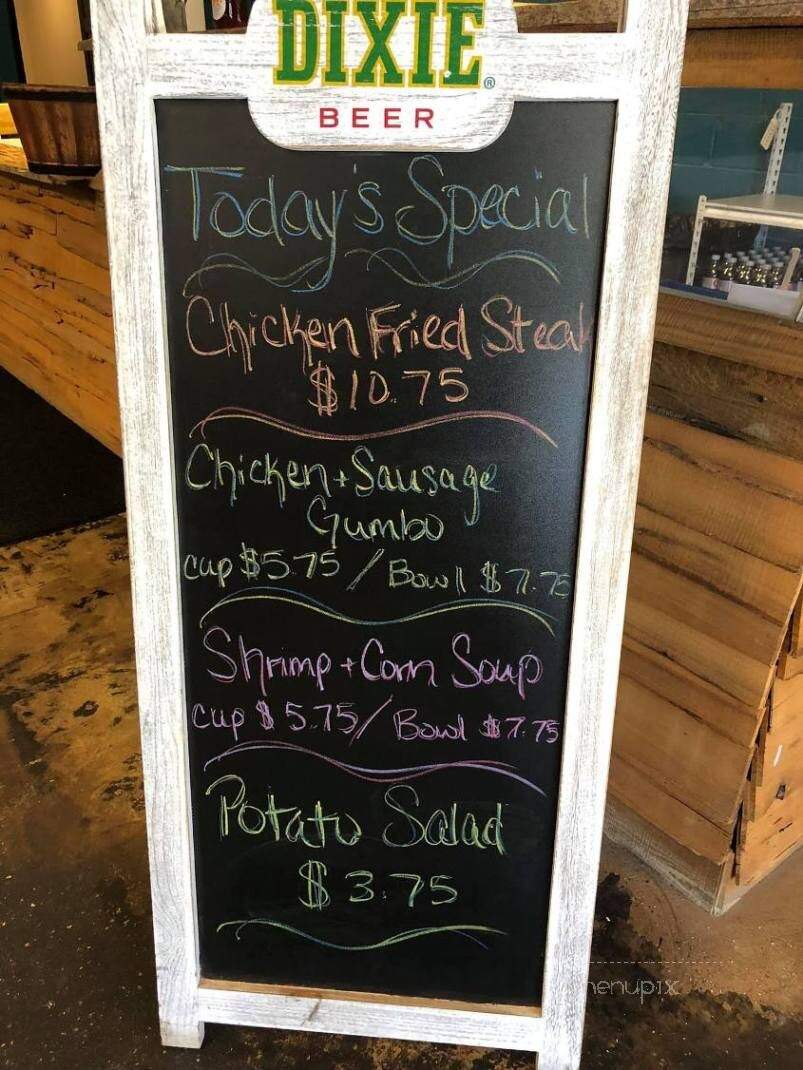 DIXIE®
BEER
Today's Special
Chicken Fried Steak
$10.75
Chicken + Sausage
Gumbo
cup $5.75 / Bowl $7.75
Shrimp + Corn Soup
cup $5.75 / Bowl $7.75
Potato Salad
$3.75
menupix